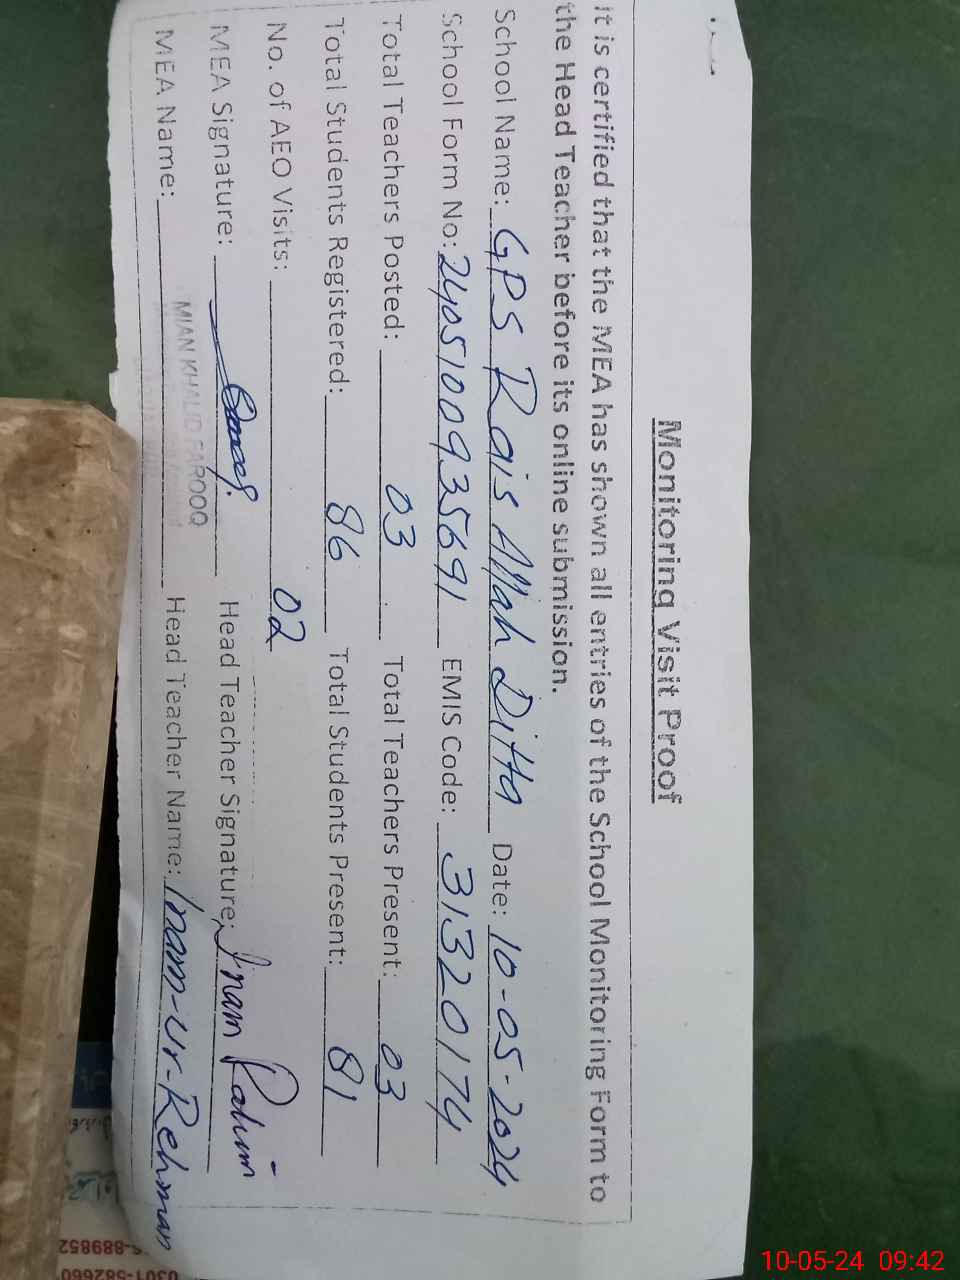 Monitoring Visit Proof
It is certified that the MEA has shown all entries of the School Monitoring Form to
the Head Teacher before its online submission.
School Name: GPS Rais Allah Ditta Date: 10-05-2024
School Form No: 240510093 5691 EMIS Code: 31320174
Total Teachers Posted: 03 Total Teachers Present: 03
Total Students Registered: 86 Total Students Present: 81
No. of AEO Visits: 02
MEA Signature: Head Teacher Signature: Inam
MIAN KHALID FAROOQ
MEA Name: Head Teacher Name: Inam-ur-Rehman
-889852
0301-582660
10-05-24 09:42